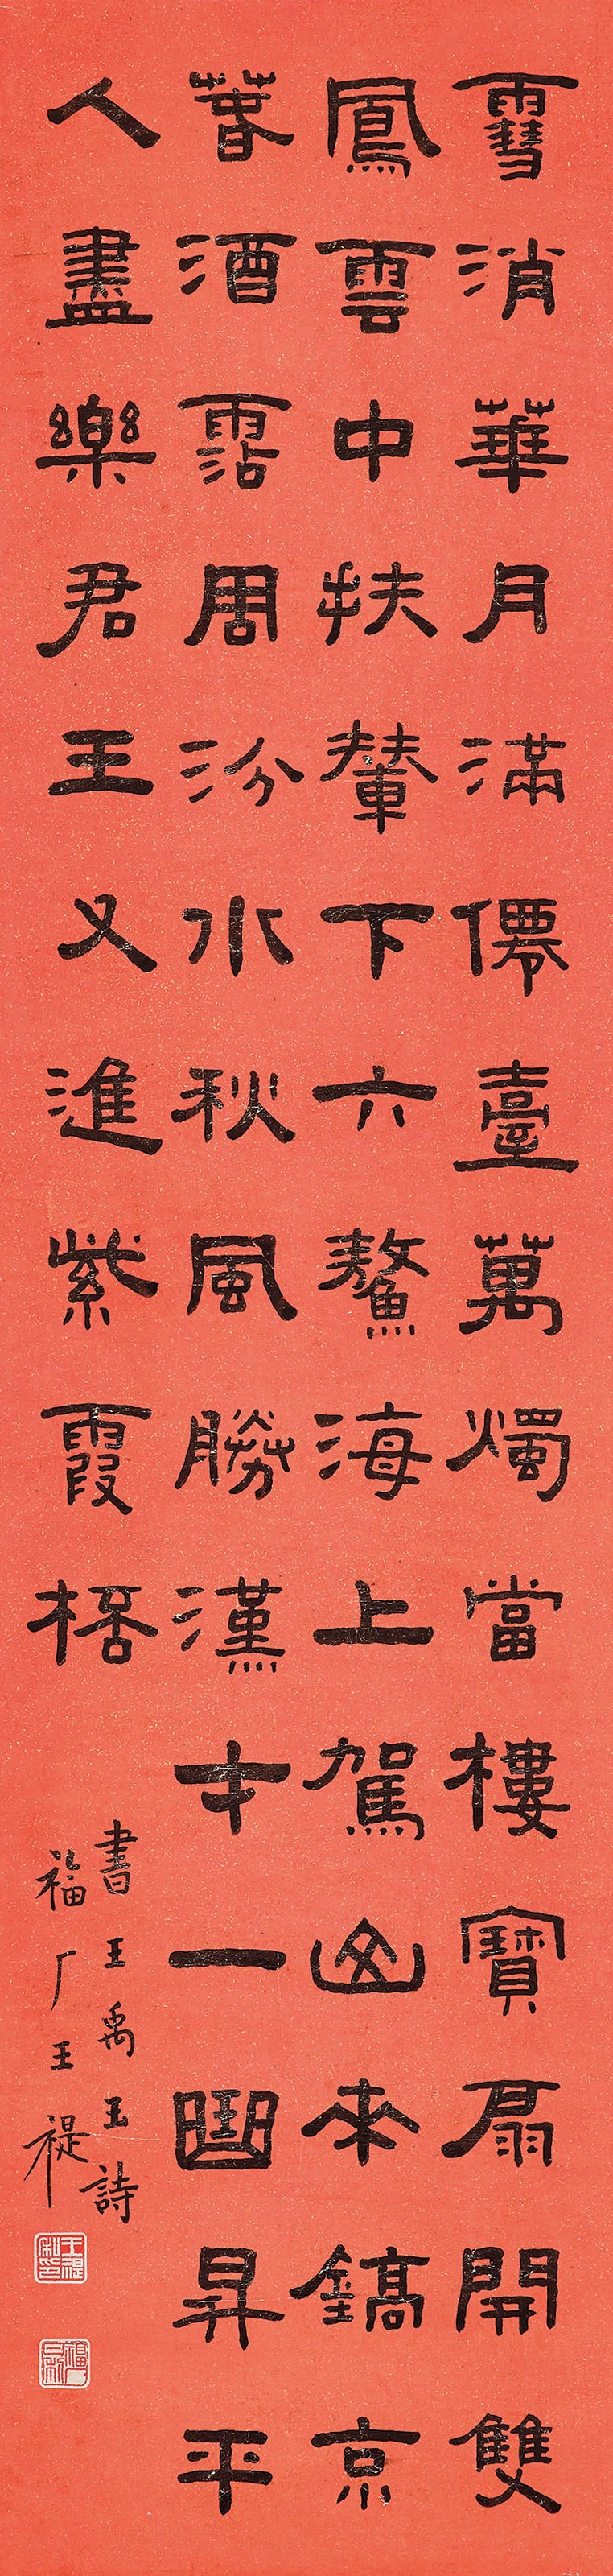 雪消華月滿僊臺萬燭當樓寶扇開雙
鳳雲中扶輦下六鰲海上駕山來鎬京
春酒霑周汾水秋風勝漢才一曲昇平
人盡樂君王又進紫霞桮
書王禹玉詩
福厂王禔
王禔私印